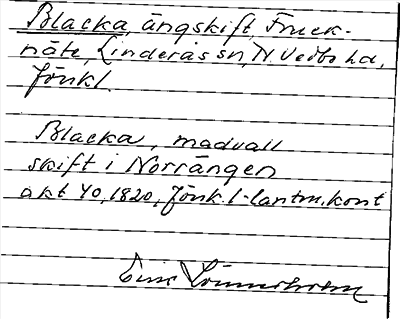 Blacka, ängskift, Fruck-
näte, Linderås sn, N. Vedbo hd,
Jönk l.
Blacka, madvall
skift i Norrängen
akt 40, 1820, Jönk. l. lantm. kont
Eric